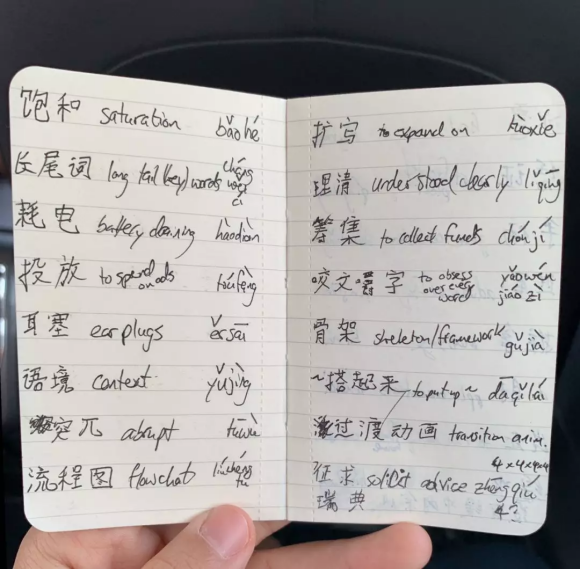 饱和 saturation bǎo hé
长尾词 long tail (key) words cháng wěi cí
耗电 battery draining hàodiàn
投放 to spend on ads tóufàng
耳塞 earplugs ěrsāi
语境 context yǔjìng
突兀 abrupt tūwù
流程图 flowchat liúchéng tú
扩写 to expand on kuòxiě
理清 understood clearly lǐqīng
筹集 to collect funds chóují
咬文嚼字 to obsess over every word yǎowén jiáo zì
骨架 skeleton/framework gǔjià
~搭起来 to put up ~ dāqǐlái
过渡动画 transition anim.
征求 solicit advice zhēngqiú
瑞典